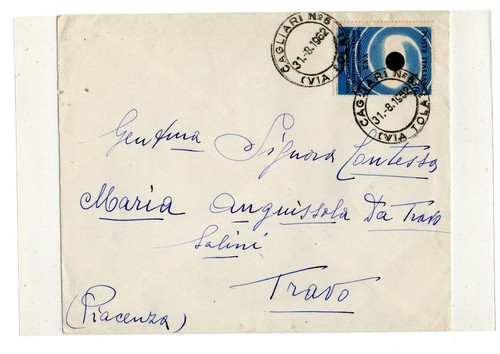 CAGLIARI Nº5
31.-8.1962
(VIA TOLA)
CAGLIARI Nº5
31.-8.1962
(VIA TOLA)
Gentma Signora Contessa
Maria Anguissola Da Travo
Salini
Travo
(Piacenza)